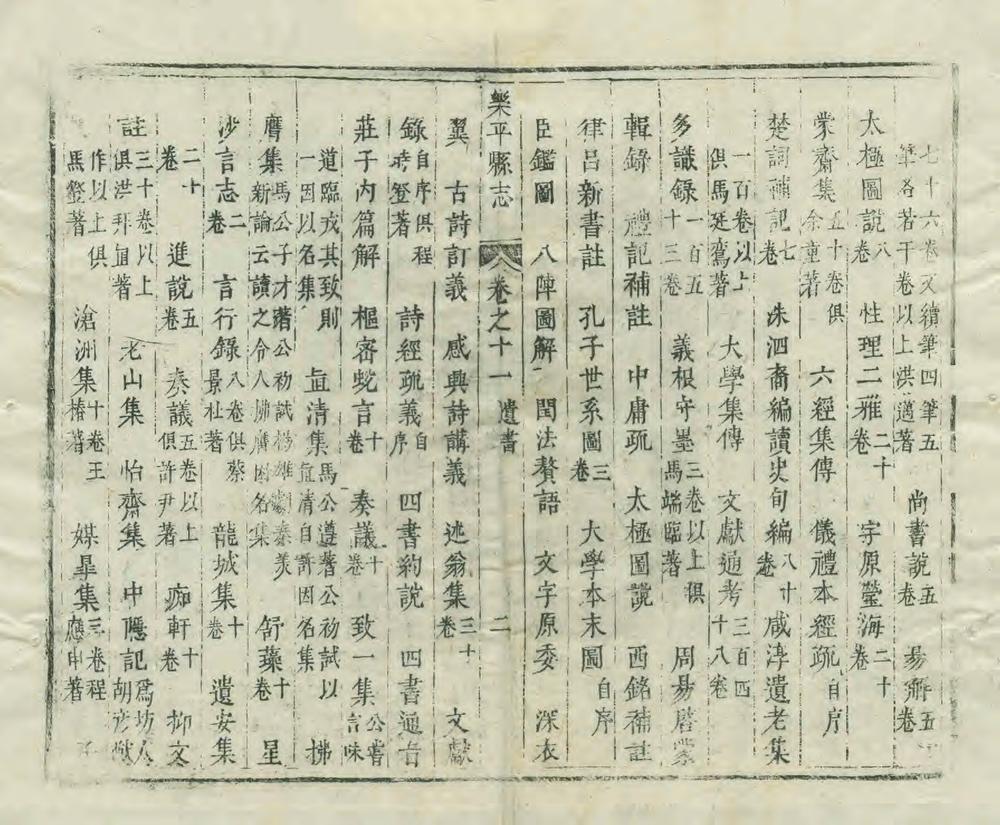 七十六卷又續筆四筆五筆各若干卷以上洪邁著　尚書說五卷　易解五卷
太極圖說八卷　性理二雅二十卷　字原瑩海二十卷
蒙齋集五十卷俱余童著　六經集傳　儀禮本經疏自序
楚詞補記七卷　洙泗裔編　讀史旬編八十卷　咸淳遺老集
一百卷以上俱馬廷鸞著　大學集傳　文獻通考三百四十八卷
多識錄一百五十三卷　義根守墨三卷以上俱馬端臨著　周易啓蒙
輯錄　禮記補註　中庸疏　太極圖說　西銘補註
律呂新書註　孔子世系圖三卷　大學本末圖自序
臣鑑圖　八陣圖解　閏法贅語　文字原委　深衣
樂平縣志　卷之十一　遺書　二
翼　古詩訂義　感興詩講義　述翁集三十卷　文獻
錄自序俱程時登著　詩經疏義自序　四書約說　四書通旨
莊子內篇解　樞密蛻言十卷　奏議十卷　致一集公嘗言味
道臨戎其致則一因以名集　直清集馬公遵著公初試以直清自許因名集　拂
膺集馬公子才著公初試揚雄劇秦美新論云讀之令人拂膺因名集　舒蘂十卷　星
沙言志二卷　言行錄八卷俱蔡景社著　龍城集十卷　遺安集
二十卷　進說五卷　奏議五卷以上俱許尹著　痴軒十卷　抑文
註三十卷以上俱洪拜直著　老山集　怡齋集　中隱記為坊人胡彥
作以上俱馬著　滄洲集十卷王椿著　媒皋集三卷程應申著